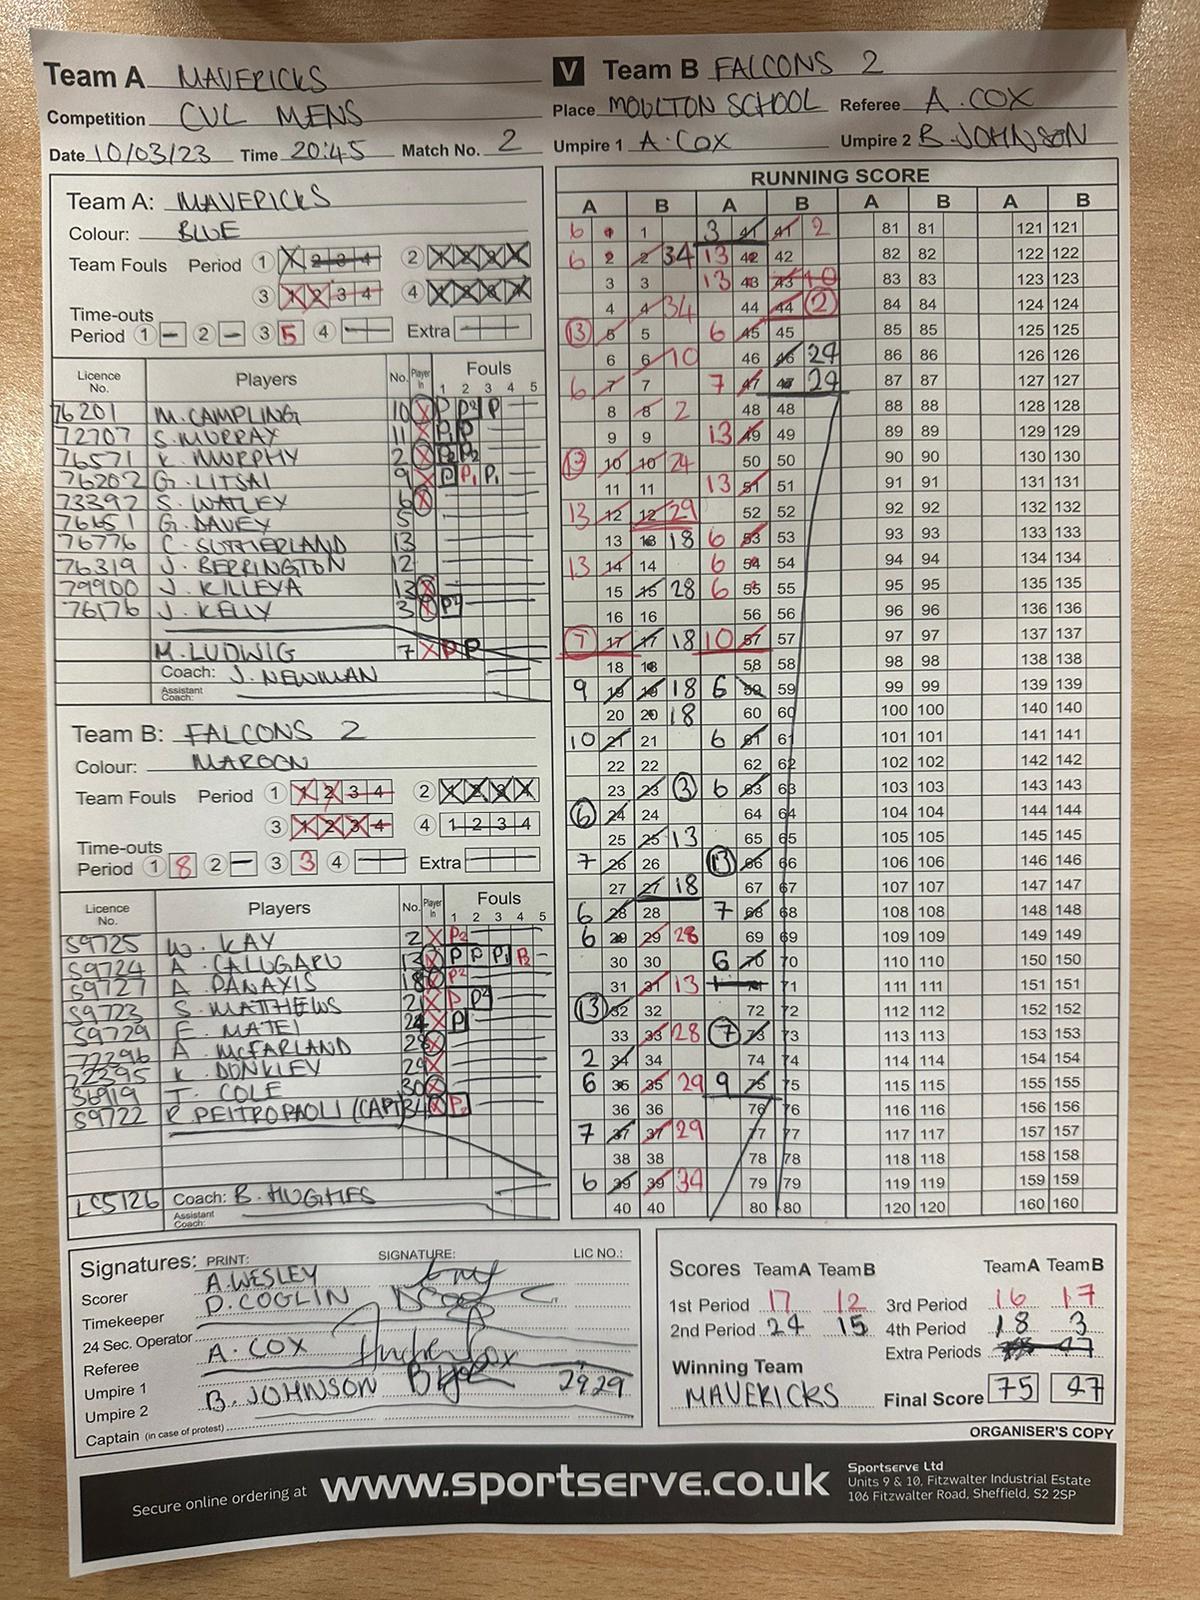 Team A MAVERICKS V Team B FALCONS 2
Competition CVL MENS Place MOULTON SCHOOL Referee A. COX
Date 10/03/23 Time 20:45 Match No. 2 Umpire 1 A. COX Umpire 2 B. JOHNSON
Team A: MAVERICKS
Colour: BLUE
Team Fouls Period 1 1 2 3 4 2 1 2 3 4
3 1 2 3 4 4 1 2 3 4
Time-outs
Period 1 – 2 – 3 5 4 Extra
Licence No. Players No. Player In Fouls
1 2 3 4 5
76201 M. CAMPLING 10 X P P2 P
72707 S. MURRAY 11 X P1 P
76571 K. MURPHY 2 X P2 P2
76202 G. LITSAI 9 X P P1 P1
73392 S. WATLEY 6 X
76651 G. DAVEY 5
76776 C. SUTHERLAND 13
76319 J. BERRINGTON 12
79900 J. KILLEYA 13 X
76176 J. KELLY 3 X P2
M. LUDWIG 7 X P P
Coach: J. NEWMAN
Assistant Coach:
Team B: FALCONS 2
Colour: MAROON
Team Fouls Period 1 1 2 3 4 2 1 2 3 4
3 1 2 3 4 4 1 2 3 4
Time-outs
Period 1 8 2 – 3 3 4 Extra
Licence No. Players No. Player In Fouls
1 2 3 4 5
S9725 W. KAY 2 X P2
S9724 A. CALUGARU 13 X P P P1 P2 –
S9727 A. PANAXIS 18 X P2
S9723 S. MATTHEWS 21 X P P2
S9729 E. MATEI 24 X P
77296 A. McFARLAND 28 X
72395 K. DONKLEY 29 X
36919 T. COLE 30 X
S9722 R. PEITROPAOLI (CAPT) 34 X P2
LC5126 Coach: B. HUGHES
Assistant Coach:
RUNNING SCORE
A B A B A B A B
6 1 1 3 41 41 2 81 81 121 121
6 2 2 34 13 42 42 82 82 122 122
3 3 13 43 43 10 83 83 123 123
4 4 34 44 44 2 84 84 124 124
13 5 5 6 45 45 85 85 125 125
6 6 10 46 46 29 86 86 126 126
6 7 7 7 47 47 29 87 87 127 127
8 8 2 48 48 88 88 128 128
9 9 13 49 49 89 89 129 129
13 10 10 24 50 50 90 90 130 130
11 11 13 51 51 91 91 131 131
13 12 12 29 52 52 92 92 132 132
13 13 18 6 53 53 93 93 133 133
13 14 14 6 54 54 94 94 134 134
15 15 28 6 55 55 95 95 135 135
16 16 56 56 96 96 136 136
7 17 17 18 10 57 57 97 97 137 137
18 18 58 58 98 98 138 138
9 19 19 18 6 59 59 99 99 139 139
20 20 18 60 60 100 100 140 140
10 21 21 6 61 61 101 101 141 141
22 22 62 62 102 102 142 142
23 23 3 6 63 63 103 103 143 143
6 24 24 64 64 104 104 144 144
25 25 13 65 65 105 105 145 145
7 26 26 13 66 66 106 106 146 146
27 27 18 67 67 107 107 147 147
6 28 28 7 68 68 108 108 148 148
6 29 29 28 69 69 109 109 149 149
30 30 6 70 70 110 110 150 150
31 31 13 71 71 111 111 151 151
13 32 32 72 72 112 112 152 152
33 33 28 7 73 73 113 113 153 153
2 34 34 74 74 114 114 154 154
6 35 35 29 9 75 75 115 115 155 155
36 36 76 76 116 116 156 156
7 37 37 29 77 77 117 117 157 157
38 38 78 78 118 118 158 158
6 39 39 34 79 79 119 119 159 159
40 40 80 80 120 120 160 160
Signatures: PRINT: SIGNATURE: LIC NO.:
Scorer A. WESLEY
Timekeeper D. COGLIN
24 Sec. Operator
Referee A. COX
Umpire 1
Umpire 2 B. JOHNSON 2929
Captain (in case of protest)
Scores Team A Team B Team A Team B
1st Period 17 12 3rd Period 16 17
2nd Period 24 15 4th Period 18 3
Extra Periods
Winning Team
MAVERICKS Final Score 75 47
ORGANISER'S COPY
Secure online ordering at www.sportserve.co.uk
Sportserve Ltd
Units 9 & 10, Fitzwalter Industrial Estate
106 Fitzwalter Road, Sheffield, S2 2SP